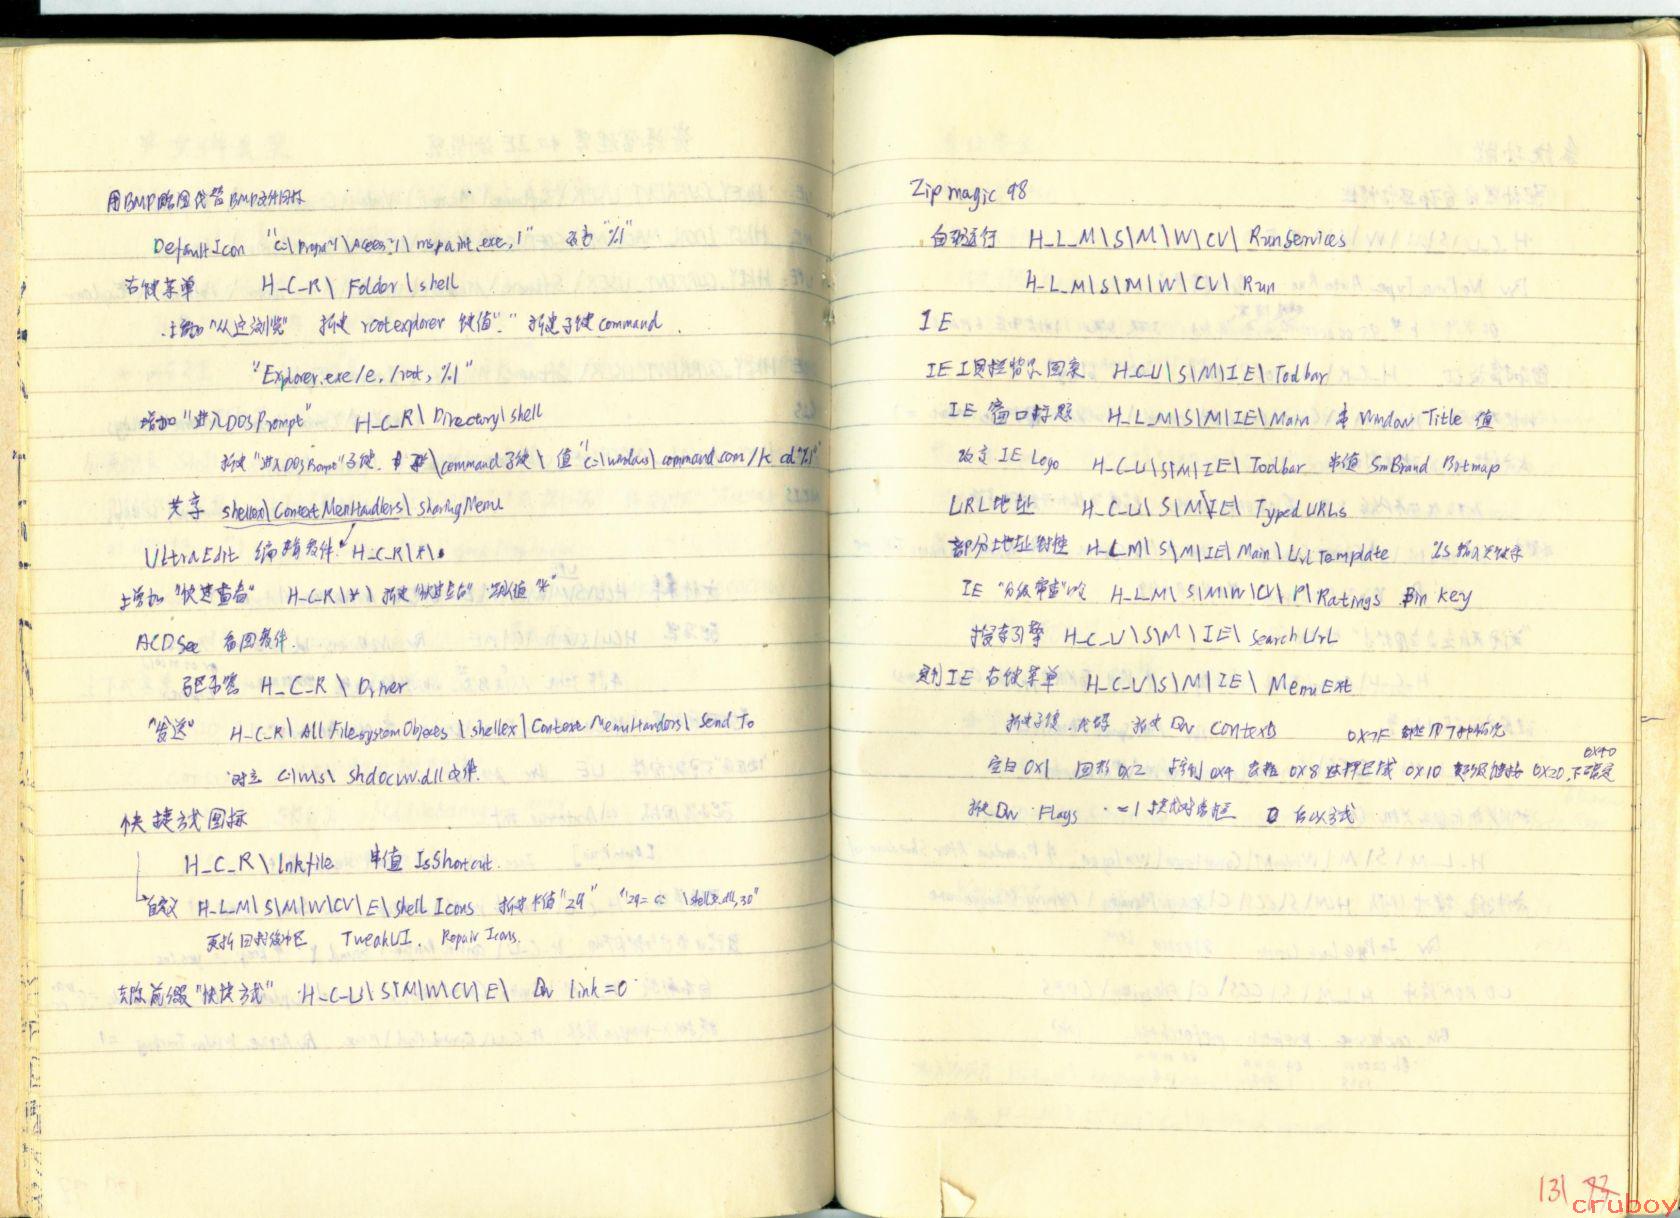 用BMP略图代替BMP文件图标
DefaultIcon "c:\Progra~1\Access~1\mspaint.exe,1" 改为 "%1"
右键菜单 H_C_R\Folder\shell
增加"从这浏览" 新建 rootexplorer 键值"." 新建子键 command
"Explorer.exe/e,/root,%1"
增加"进入DOS Prompt" H_C_R\Directory\shell
新建"进入DOS Prompt"子键. \command子键\ 值"c:\windows\command.com/k cd"%1"
共享 shellex\ContextMenHandlers\SharingMenu
UltraEdit 编辑套件. H_C_R\*\
增加"快速查看" H_C_R\*\ 新建"快速查看" 默认值"*"
ACDSee 看图套件.
驱动器 H_C_R\Driver
"发送" H_C_R\AllFilesystemObjeces\shellex\Context MenuHandors\Send To
对应 C:\W\S\ Shdocvw.dll文件.
快捷方式图标
H_C_R\lnkfile 串值 IsShortcut.
自定义 H_L_M\S\M\W\CV\E\Shell Icons 新建串值"29" "29= c: \shell32.dll,30"
更新图标缓冲区 TweakUI. Repair Icons.
去除前缀"快捷方式" H_C_U\S\M\W\CV\E\ Dw link=0
Zip magic 98
自动运行 H_L_M\S\M\W\CV\RunServices
H_L_M\S\M\W\CV\Run
IE
IE工具栏背景图案 H_C_U\S\M\IE\Toolbar
IE 窗口标题 H_L_M\S\M\IE\Main 串 Window Title 值
改变 IE Logo H_C_U\S\M\IE\Toolbar 串值 SmBrand Bitmap
URL地址 H_C_U\S\M\IE\TypedURLs
部分地址 H_L_M\S\M\IE\Main\UrlTemplate %s 输入关键字
IE "分级审查" H_L_M\S\M\W\CV\P\Ratings Bin key
搜索引擎 H_C_U\S\M\IE\SearchUrL
定制IE右键菜单 H_C_U\S\M\IE\MenuExt
新建子键 新建 Dw Contexts 0X7F
空白0X1 图形0X2 控制0X4 表格0X8 选择区域0X10 超级链接0X20, 不确定0X40
新建Dw Flags =1 模式对话框 0
131 77
cruboy